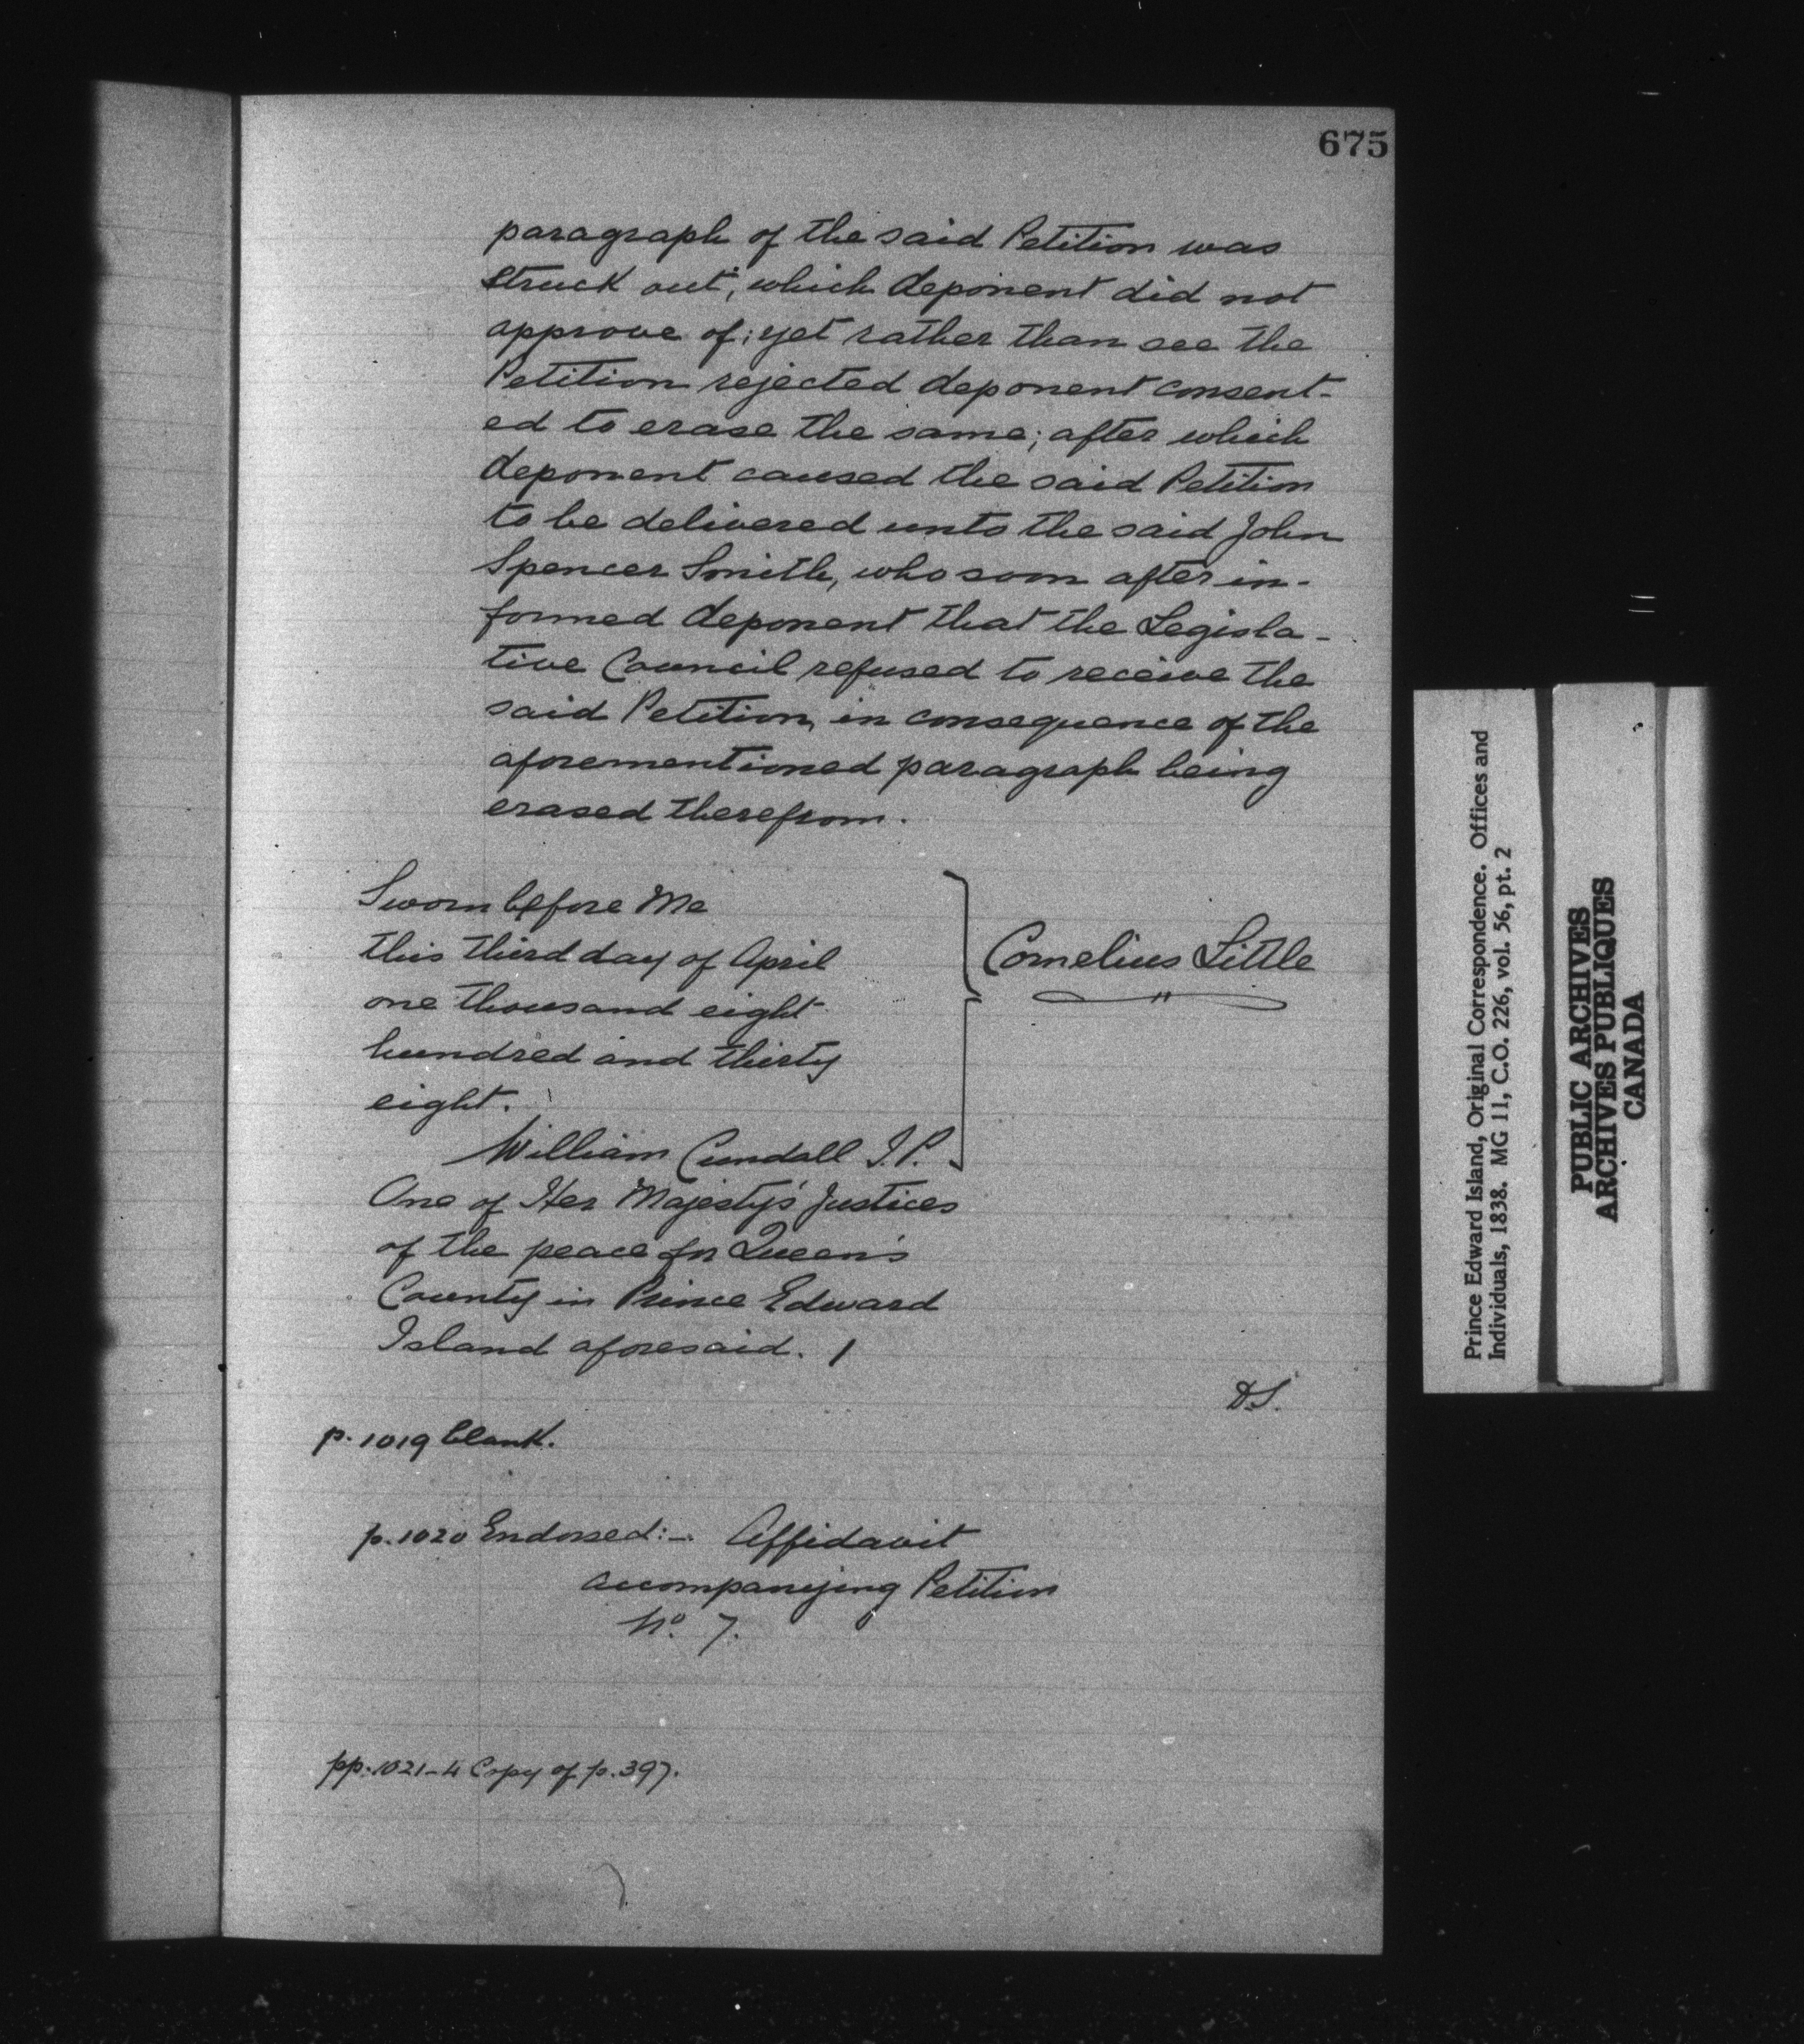 675
paragraph of the said Petition was
struck out; which deponent did not
approve of; yet rather than see the
Petition rejected deponent consent-
ed to erase the same; after which
deponent caused the said Petition
to be delivered unto the said John
Spencer Smith, who soon after in-
formed deponent that the Legisla-
tive Council refused to receive the
said Petition, in consequence of the
aforementioned paragraph being
erased therefrom.
Sworn before Me
this third day of April
one thousand eight
hundred and thirty
eight.
Cornelius Little
William Cundall J.P.
One of Her Majesty's Justices
of the peace for Queen's
County in Prince Edward
Island aforesaid.
D.S.
p. 1019 blank.
p. 1020 Endorsed:- Affidavit
accompanying Petition
No. 7.
pp. 1021-4 Copy of p. 397.
Prince Edward Island, Original Correspondence. Offices and
Individuals, 1838. MG 11, C.O. 226, vol. 56, pt. 2
PUBLIC ARCHIVES
ARCHIVES PUBLIQUES
CANADA